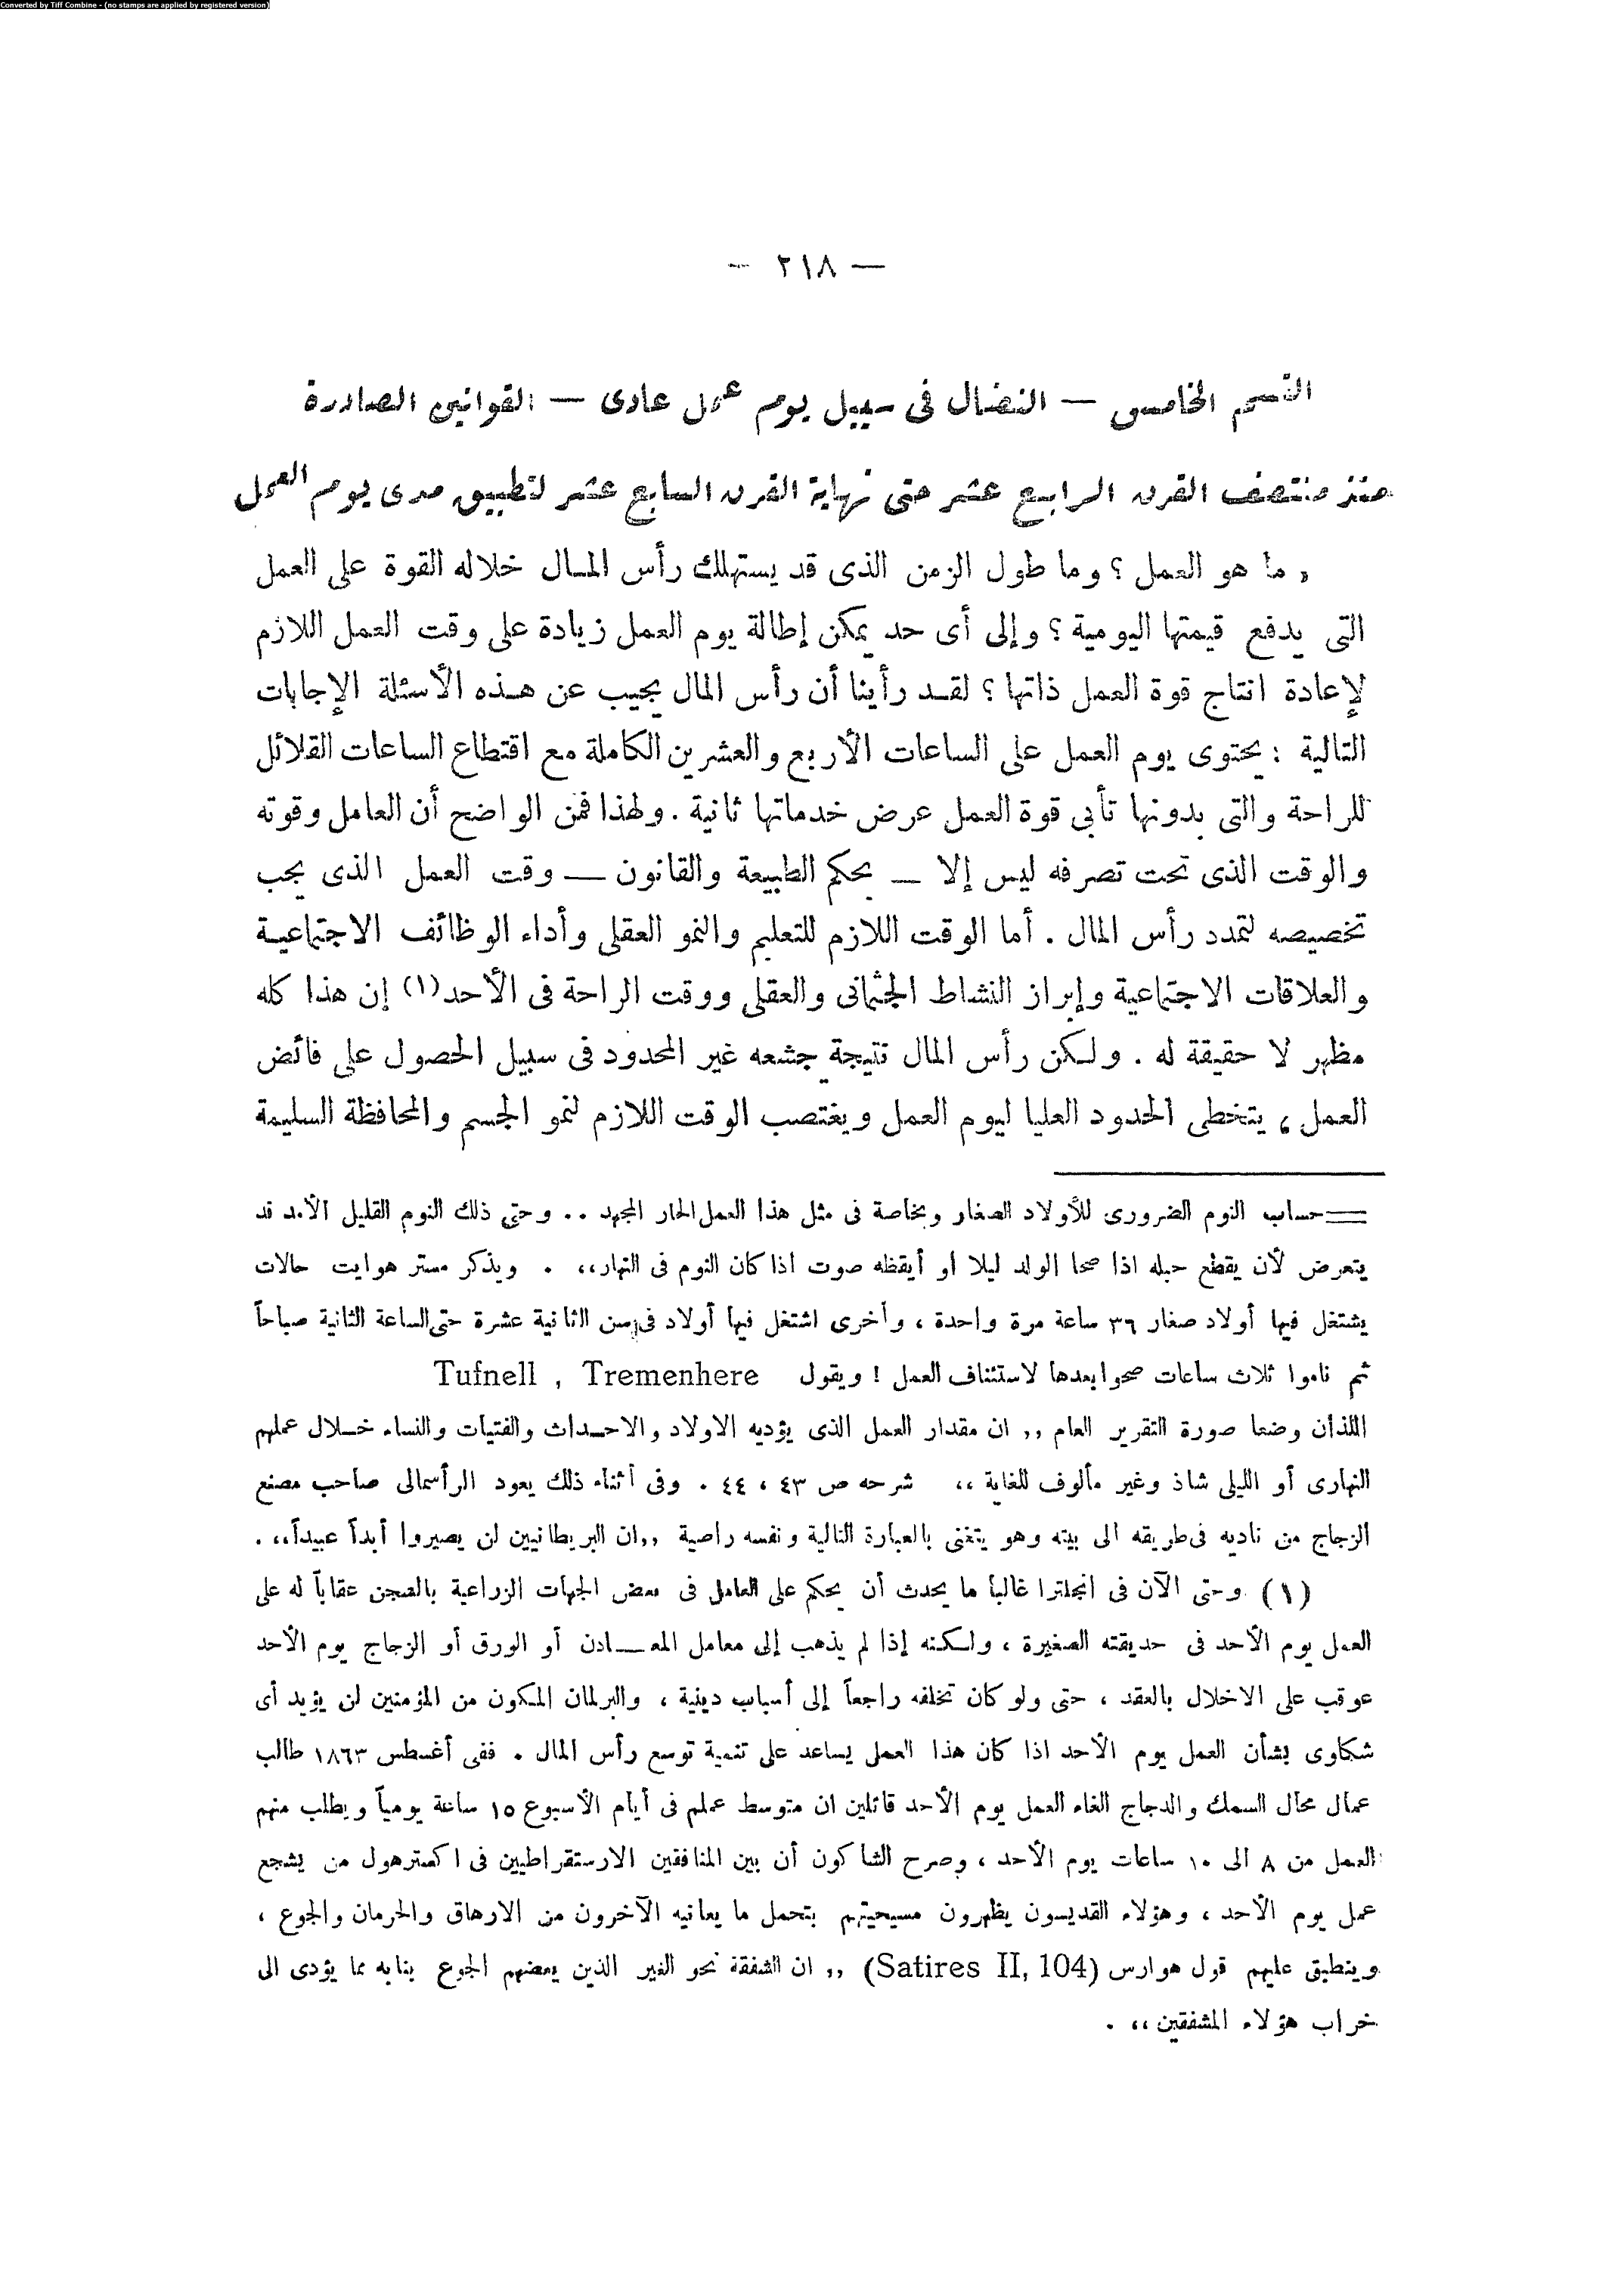 Converted by Tiff Combine - (no stamps are applied by registered version)
— ٢١٨ —
القسم الخامس — النضال فى سبيل يوم عمل عادى — القوانين الصادرة
منذ منتصف القرن الرابع عشر حتى نهاية القرن السابع عشر لتطبيق مدى يوم العمل
« ما هو العمل ؟ وما طول الزمن الذى قد يستهلك رأس المال خلاله القوة على العمل
التى يدفع قيمتها اليومية ؟ وإلى أى حد يمكن إطالة يوم العمل زيادة على وقت العمل اللازم
لإعادة انتاج قوة العمل ذاتها ؟ لقد رأينا أن رأس المال يجيب عن هذه الأسئلة الإجابات
التالية : يحتوى يوم العمل على الساعات الأربع والعشرين الكاملة مع اقتطاع الساعات القلائل
للراحة والتى بدونها تأبى قوة العمل عرض خدماتها ثانية . ولهذا فمن الواضح أن العامل وقوته
والوقت الذى تحت تصرفه ليس إلا — بحكم الطبيعة والقانون — وقت العمل الذى يجب
تخصيصه لتمدد رأس المال . أما الوقت اللازم للتعليم والنمو العقلى وأداء الوظائف الاجتماعية
والعلاقات الاجتماعية وإبراز النشاط الجثمانى والعقلى ووقت الراحة فى الأحد (١) إن هذا كله
مظهر لا حقيقة له . ولكن رأس المال نتيجة جشعه غير المحدود فى سبيل الحصول على فائض
العمل ، يتخطى الحدود العليا ليوم العمل ويغتصب الوقت اللازم لنمو الجسم والمحافظة السليمة
= حساب النوم الضرورى للأولاد الصغار وبخاصة فى مثل هذا العمل الحار المجهد .. وحتى ذلك النوم القليل الأمد قد
يتعرض لأن يقطع حبله اذا صحا الولد ليلا أو أيقظه صوت اذا كان النوم فى النهار،، . ويذكر مستر هوايت حالات
يشتغل فيها أولاد صغار ٣٦ ساعة مرة واحدة ، وأخرى اشتغل فيها أولاد فى سن الثانية عشرة حتى الساعة الثانية صباحاً
ثم ناموا ثلاث ساعات صحوا بعدها لاستئناف العمل ! ويقول Tufnell , Tremenhere
اللذان وضعا صورة التقرير العام ,, ان مقدار العمل الذى يؤديه الاولاد والاحداث والفتيات والنساء خلال عملهم
النهارى أو الليلى شاذ وغير مألوف للغاية ،، شرحه ص ٤٣ ، ٤٤ . وفى أثناء ذلك يعود الرأسمالى صاحب مصنع
الزجاج من ناديه فى طريقه الى بيته وهو يتغنى بالعبارة التالية ونفسه راضية ,,ان البريطانيين لن يصيروا أبداً عبيداً،، .
(١) وحتى الآن فى انجلترا غالبا ما يحدث أن يحكم على العامل فى بعض الجهات الزراعية بالسجن عقاباً له على
العمل يوم الأحد فى حديقته الصغيرة ، ولكنه إذا لم يذهب إلى معامل المعادن أو الورق أو الزجاج يوم الأحد
عوقب على الاخلال بالعقد ، حتى ولو كان تخلفه راجعاً إلى أسباب دينية ، والبرلمان المكون من المؤمنين لن يؤيد أى
شكاوى بشأن العمل يوم الأحد اذا كان هذا العمل يساعد على تنمية توسع رأس المال . ففى أغسطس ١٨٦٣ طالب
عمال محال السمك والدجاج الغاء العمل يوم الأحد قائلين ان متوسط عملهم فى أيام الأسبوع ١٥ ساعة يومياً ويطلب منهم
العمل من ٨ الى ١٠ ساعات يوم الأحد ، وصرح الشاكون أن بين المنافقين الارستقراطيين فى اكسترهول من يشجع
عمل يوم الأحد ، وهؤلاء القديسون يظهرون مسيحيتهم بتحمل ما يعانيه الآخرون من الارهاق والحرمان والجوع ،
وينطبق عليهم قول هوارس (Satires II, 104) ,, ان الشفقة نحو الغير الذين يعضهم الجوع بنابه مما يؤدى الى
خراب هؤلاء المشفقين ،، .